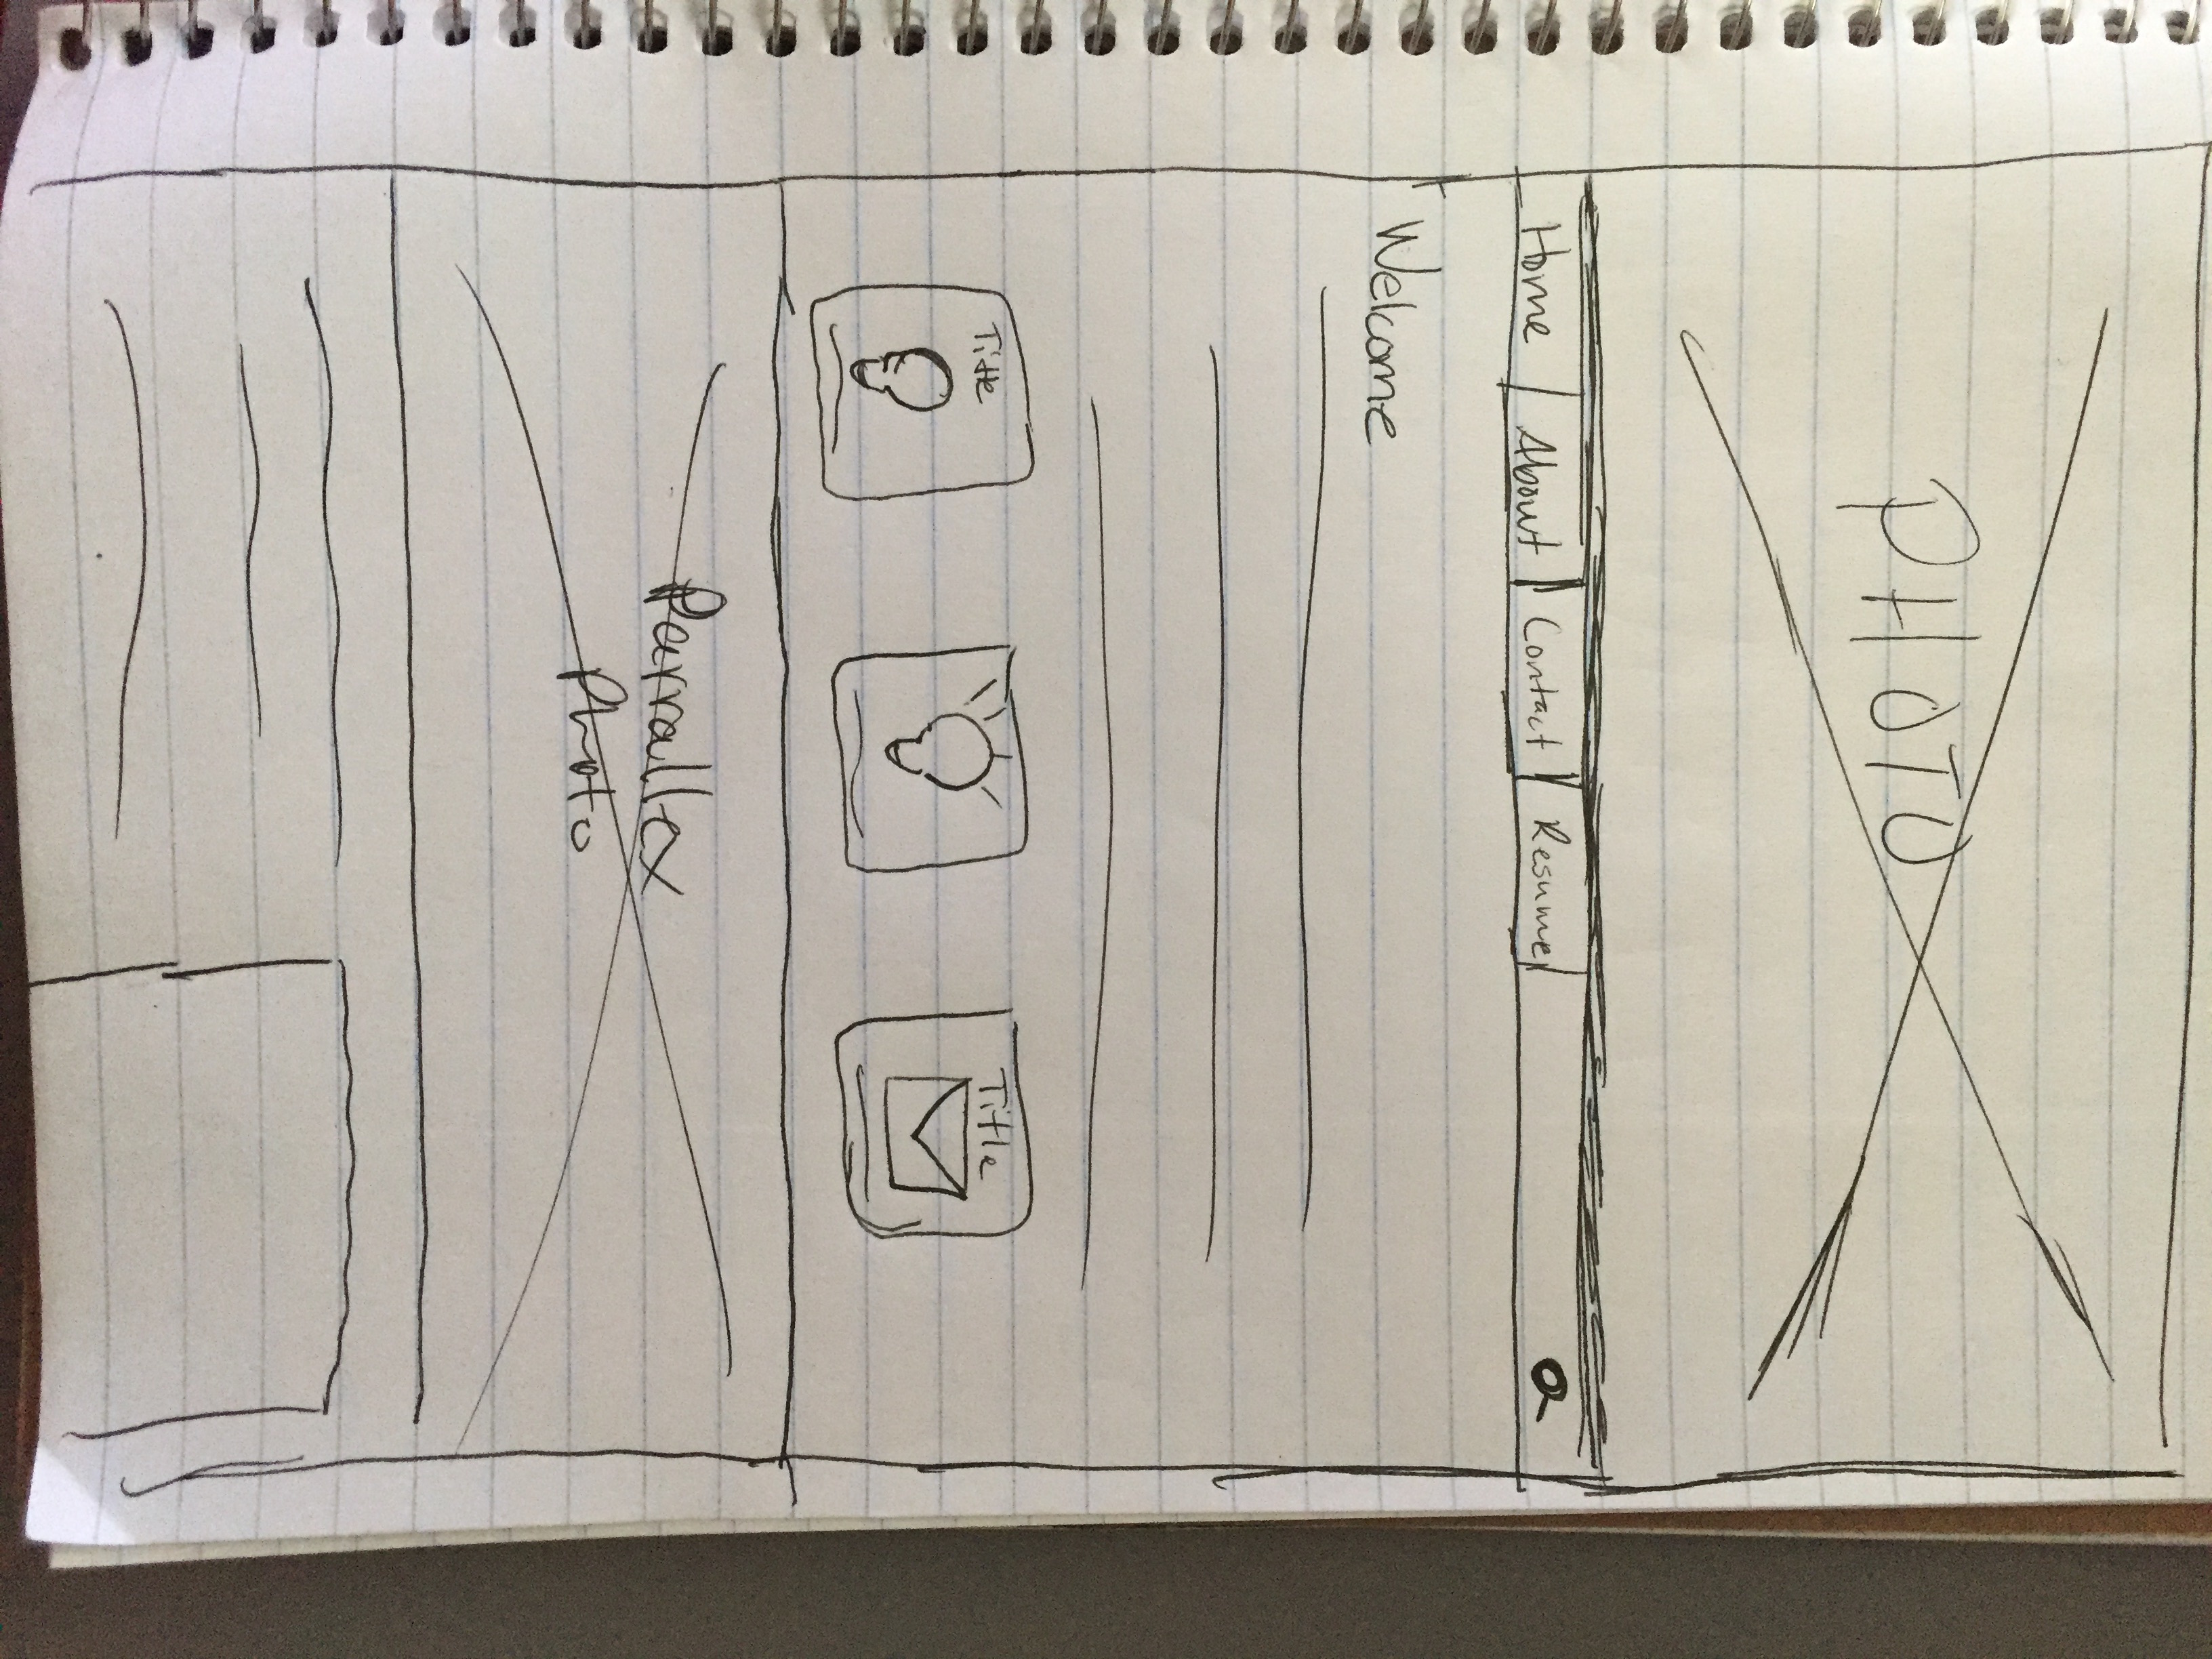 PHOTO
Home About Contact Resume
Welcome
Title Title
Parrallex
Photo